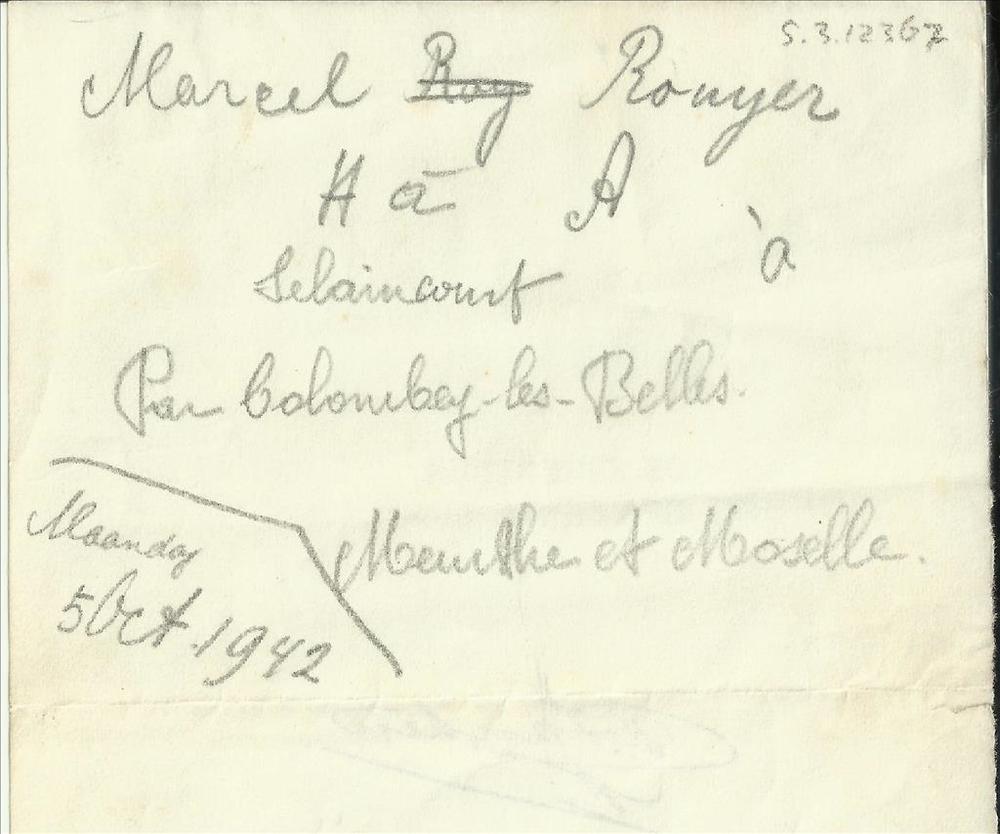 S.3.12367
Marcel Roy Rouyer
A à A à
Selaincourt
Par Colombey-les-Belles.
Meurthe et Moselle.
Maandag
5 Oct. 1942